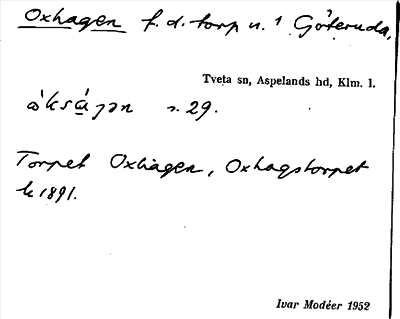 Oxhagen f. d. torp u. 1 Göteruda.
Tveta sn, Aspelands hd, Klm. l.
s. 29.
Torpet Oxhagen, Oxhagstorpet
k 1891.
Ivar Modéer 1952